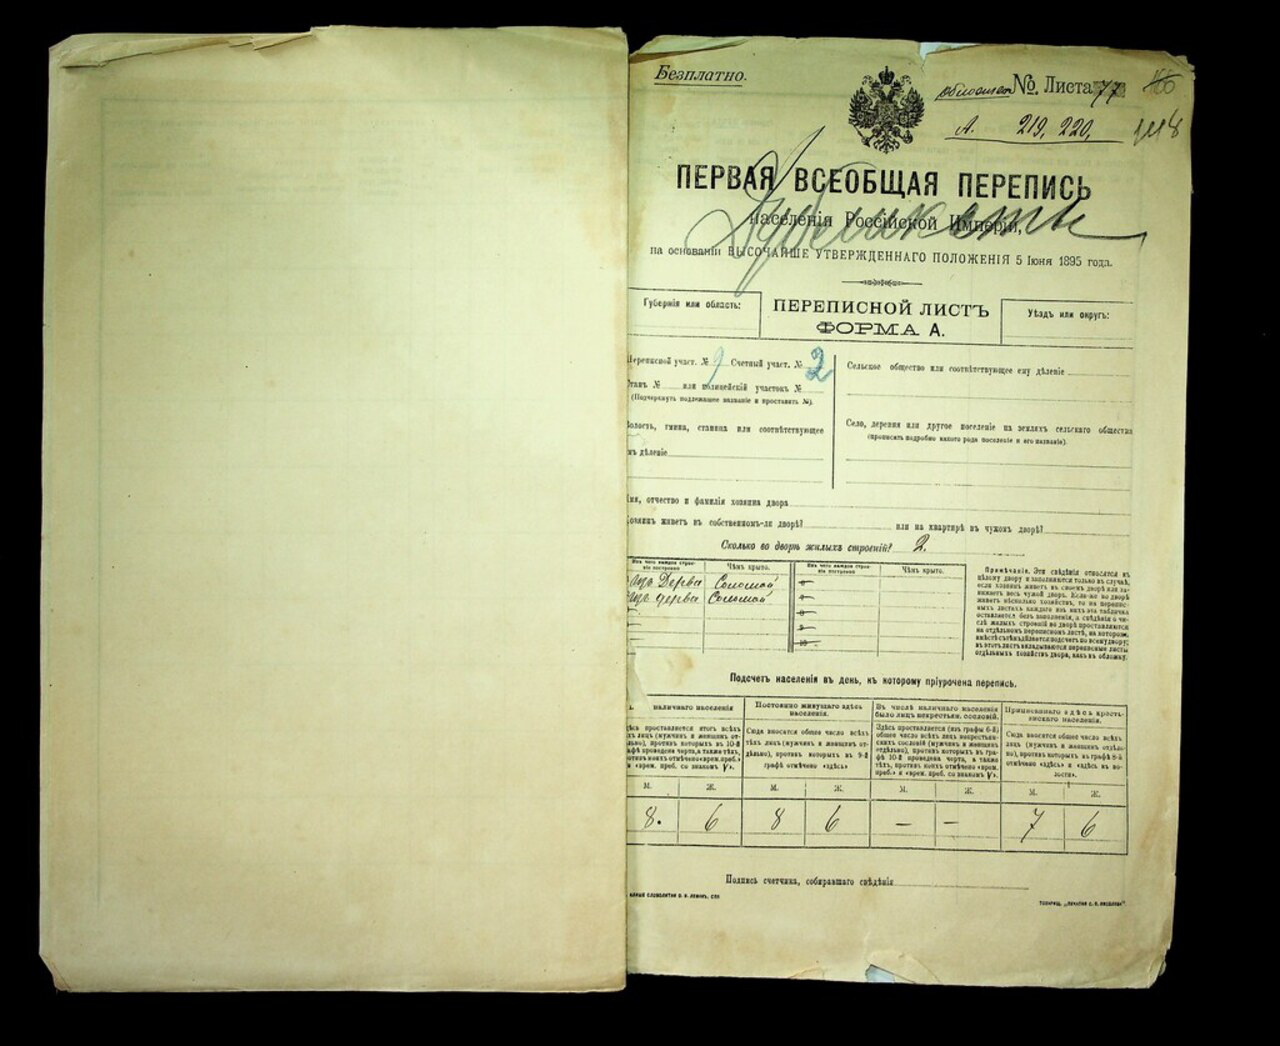 Безплатно.
обложен № Листа 77
А. 219, 220,
ПЕРВАЯ ВСЕОБЩАЯ ПЕРЕПИСЬ
населенія Россійской Имперіи,
на основаніи ВЫСОЧАЙШЕ УТВЕРЖДЕННАГО ПОЛОЖЕНІЯ 5 Іюня 1895 года.
Губернія или область:
ПЕРЕПИСНОЙ ЛИСТЪ
ФОРМА А.
Уѣздъ или округъ:
Переписной участ. № Счетный участ. № 2
Станъ № или полицейскій участокъ №
(Подчеркнуть подлежащее названіе и проставить №).
Волость, гмина, станица или соотвѣтствующее
имъ дѣленіе
Сельское общество или соотвѣтствующее ему дѣленіе
Село, деревня или другое поселеніе на земляхъ сельскаго общества
(прописать подробно какого рода поселеніе и его названіе).
Имя, отчество и фамилія хозяина двора
Хозяинъ живетъ въ собственномъ-ли дворѣ? или на квартирѣ въ чужомъ дворѣ?
Сколько во дворѣ жилыхъ строеній? 2.
Изъ чего каждое строеніе построено Чѣмъ крыто.
Изъ чего каждое строеніе построено Чѣмъ крыто.
Изъ Дерва Соломой
Изъ дерва Соломой
Примѣчаніе. Эти свѣдѣнія относятся къ
цѣлому двору и заполняются только въ случаѣ,
если хозяинъ живетъ въ своемъ дворѣ или занимаетъ
весь чужой дворъ. Если-же во дворѣ
живетъ нѣсколько хозяйствъ, то на переписныхъ
листахъ каждаго изъ нихъ эта табличка
оставляется безъ заполненія, а свѣдѣнія о числѣ
жилыхъ строеній во дворѣ проставляются
на отдѣльномъ переписномъ листѣ, на которомъ
вмѣстѣ съ тѣмъ дѣлается подсчетъ по всему двору;
въ этотъ листъ вкладываются переписные листы
отдѣльныхъ хозяйствъ двора, какъ въ обложку.
Подсчетъ населенія въ день, къ которому пріурочена перепись.
наличнаго населенія
Здѣсь проставляется итогъ всѣхъ
Постоянно живущаго здѣсь
населенія.
Сюда вносятся общее число всѣхъ
тѣхъ лицъ (мужчинъ и женщинъ отдѣльно),
противъ которыхъ въ 9-й
графѣ отмѣчено «здѣсь»
Въ числѣ наличнаго населенія
было лицъ некрестьян. сословій.
Здѣсь проставляется (изъ графы 6-й)
общее число всѣхъ лицъ некрестьянскихъ
сословій (мужчинъ и женщинъ
отдѣльно), противъ которыхъ въ графѣ
10-й проведена черта, а также
тѣхъ, противъ коихъ отмѣчено «врем.
преб.» и «врем. преб. со знакомъ V».
Приписаннаго здѣсь крестьянскаго
населенія.
Сюда вносятся общее число всѣхъ
лицъ (мужчинъ и женщинъ отдѣльно),
противъ которыхъ въ графѣ 8-й
отмѣчено «здѣсь» и «здѣсь въ волости».
М. Ж. М. Ж. М. Ж. М. Ж.
8. 6 8 6 — — 7 6
Подпись счетчика, собиравшаго свѣдѣнія